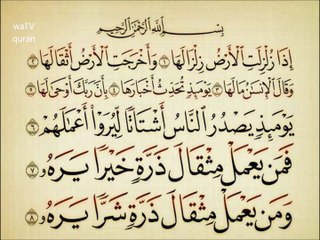 waTV
quran
بِسْمِ اللَّهِ الرَّحْمَٰنِ الرَّحِيمِ
إِذَا زُلْزِلَتِ الْأَرْضُ زِلْزَالَهَا ١ وَأَخْرَجَتِ الْأَرْضُ أَثْقَالَهَا ٢
وَقَالَ الْإِنسَٰنُ مَالَهَا ٣ يَوْمَئِذٍ تُحَدِّثُ أَخْبَارَهَا ٤ بِأَنَّ رَبَّكَ أَوْحَىٰ لَهَا ٥
يَوْمَئِذٍ يَصْدُرُ النَّاسُ أَشْتَاتًا لِّيُرَوْا أَعْمَٰلَهُمْ ٦
فَمَن يَعْمَلْ مِثْقَالَ ذَرَّةٍ خَيْرًا يَرَهُ ٧
وَمَن يَعْمَلْ مِثْقَالَ ذَرَّةٍ شَرًّا يَرَهُ ٨